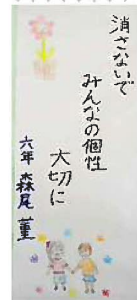 消さないで
みんなの個性
大切に
六年 森尾 菫